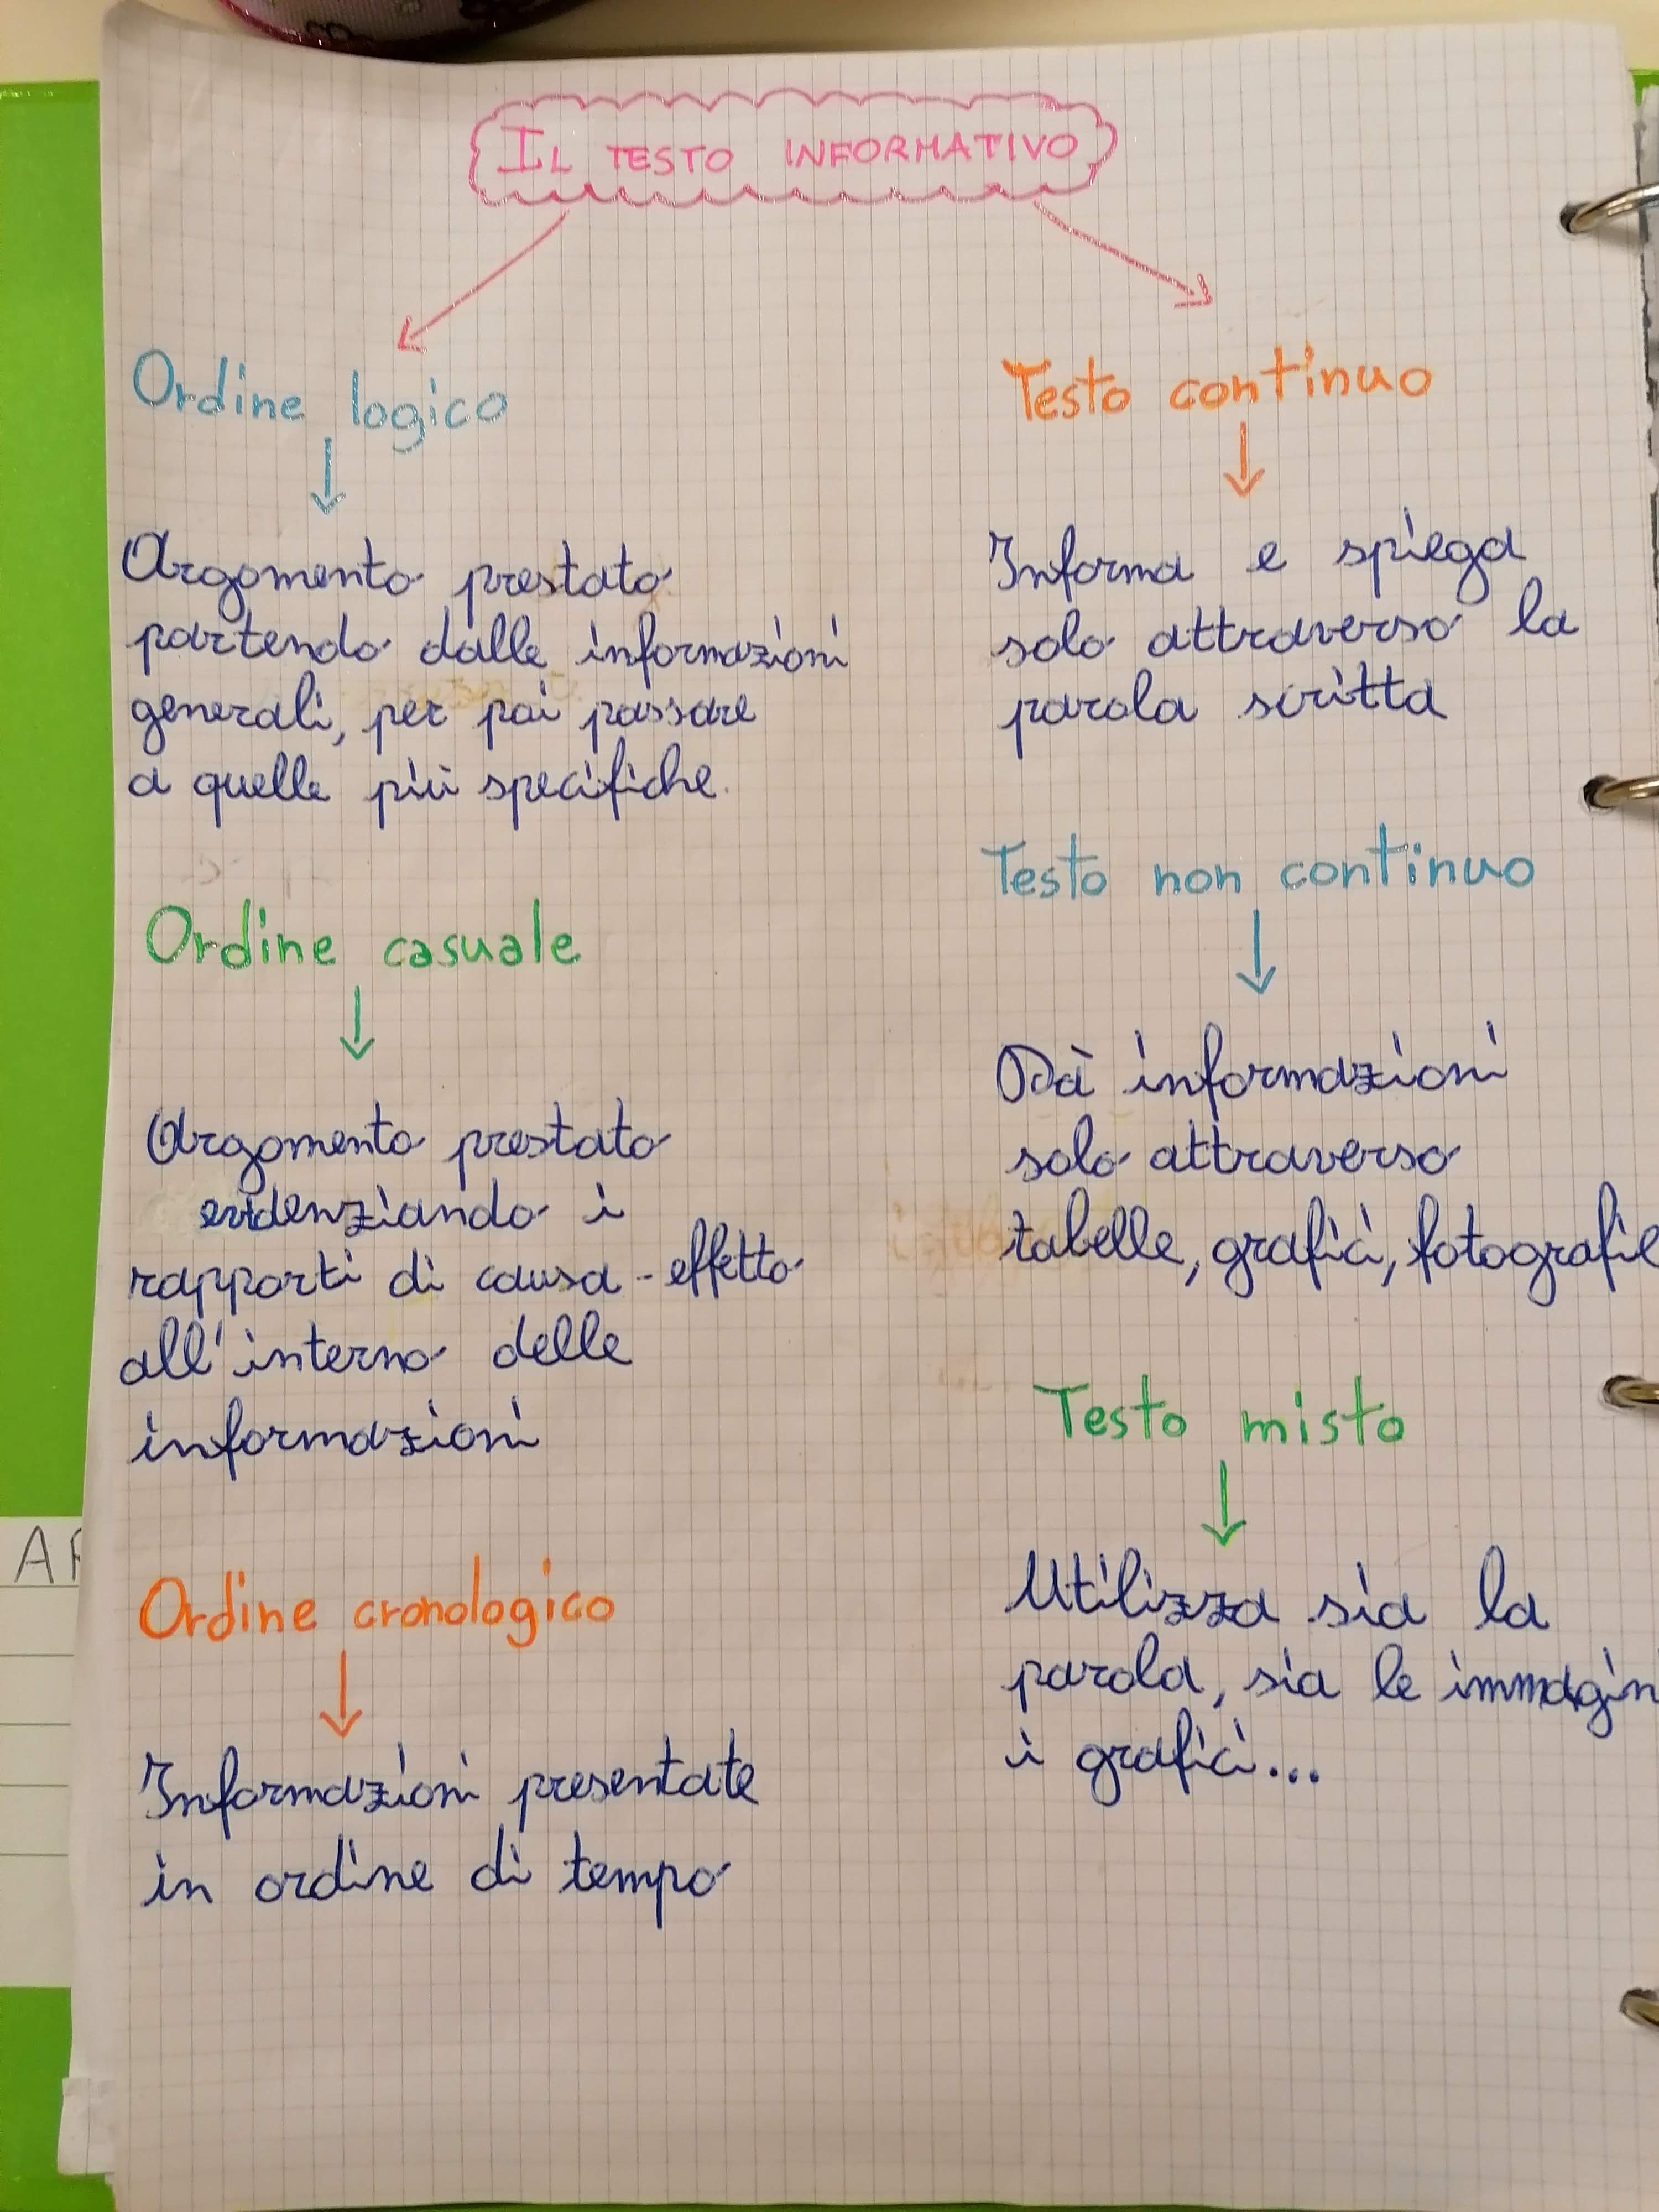 IL TESTO INFORMATIVO
Ordine logico
Argomento prestato
partendo dalle informazioni
generali, per poi passare
a quelle più specifiche.
Ordine casuale
Argomento prestato
evidenziando i
rapporti di causa-effetto
all'interno delle
informazioni
Ordine cronologico
Informazioni presentate
in ordine di tempo
Testo continuo
Informa e spiega
solo attraverso la
parola scritta
Testo non continuo
Dà informazioni
solo attraverso
tabelle, grafici, fotografie
Testo misto
Utilizza sia la
parola, sia le immagin
i grafici...